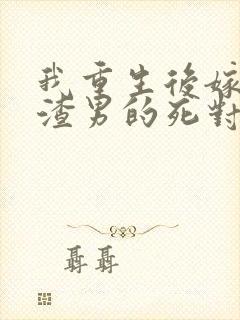 我重生後嫁
渣男的死對
聶聶